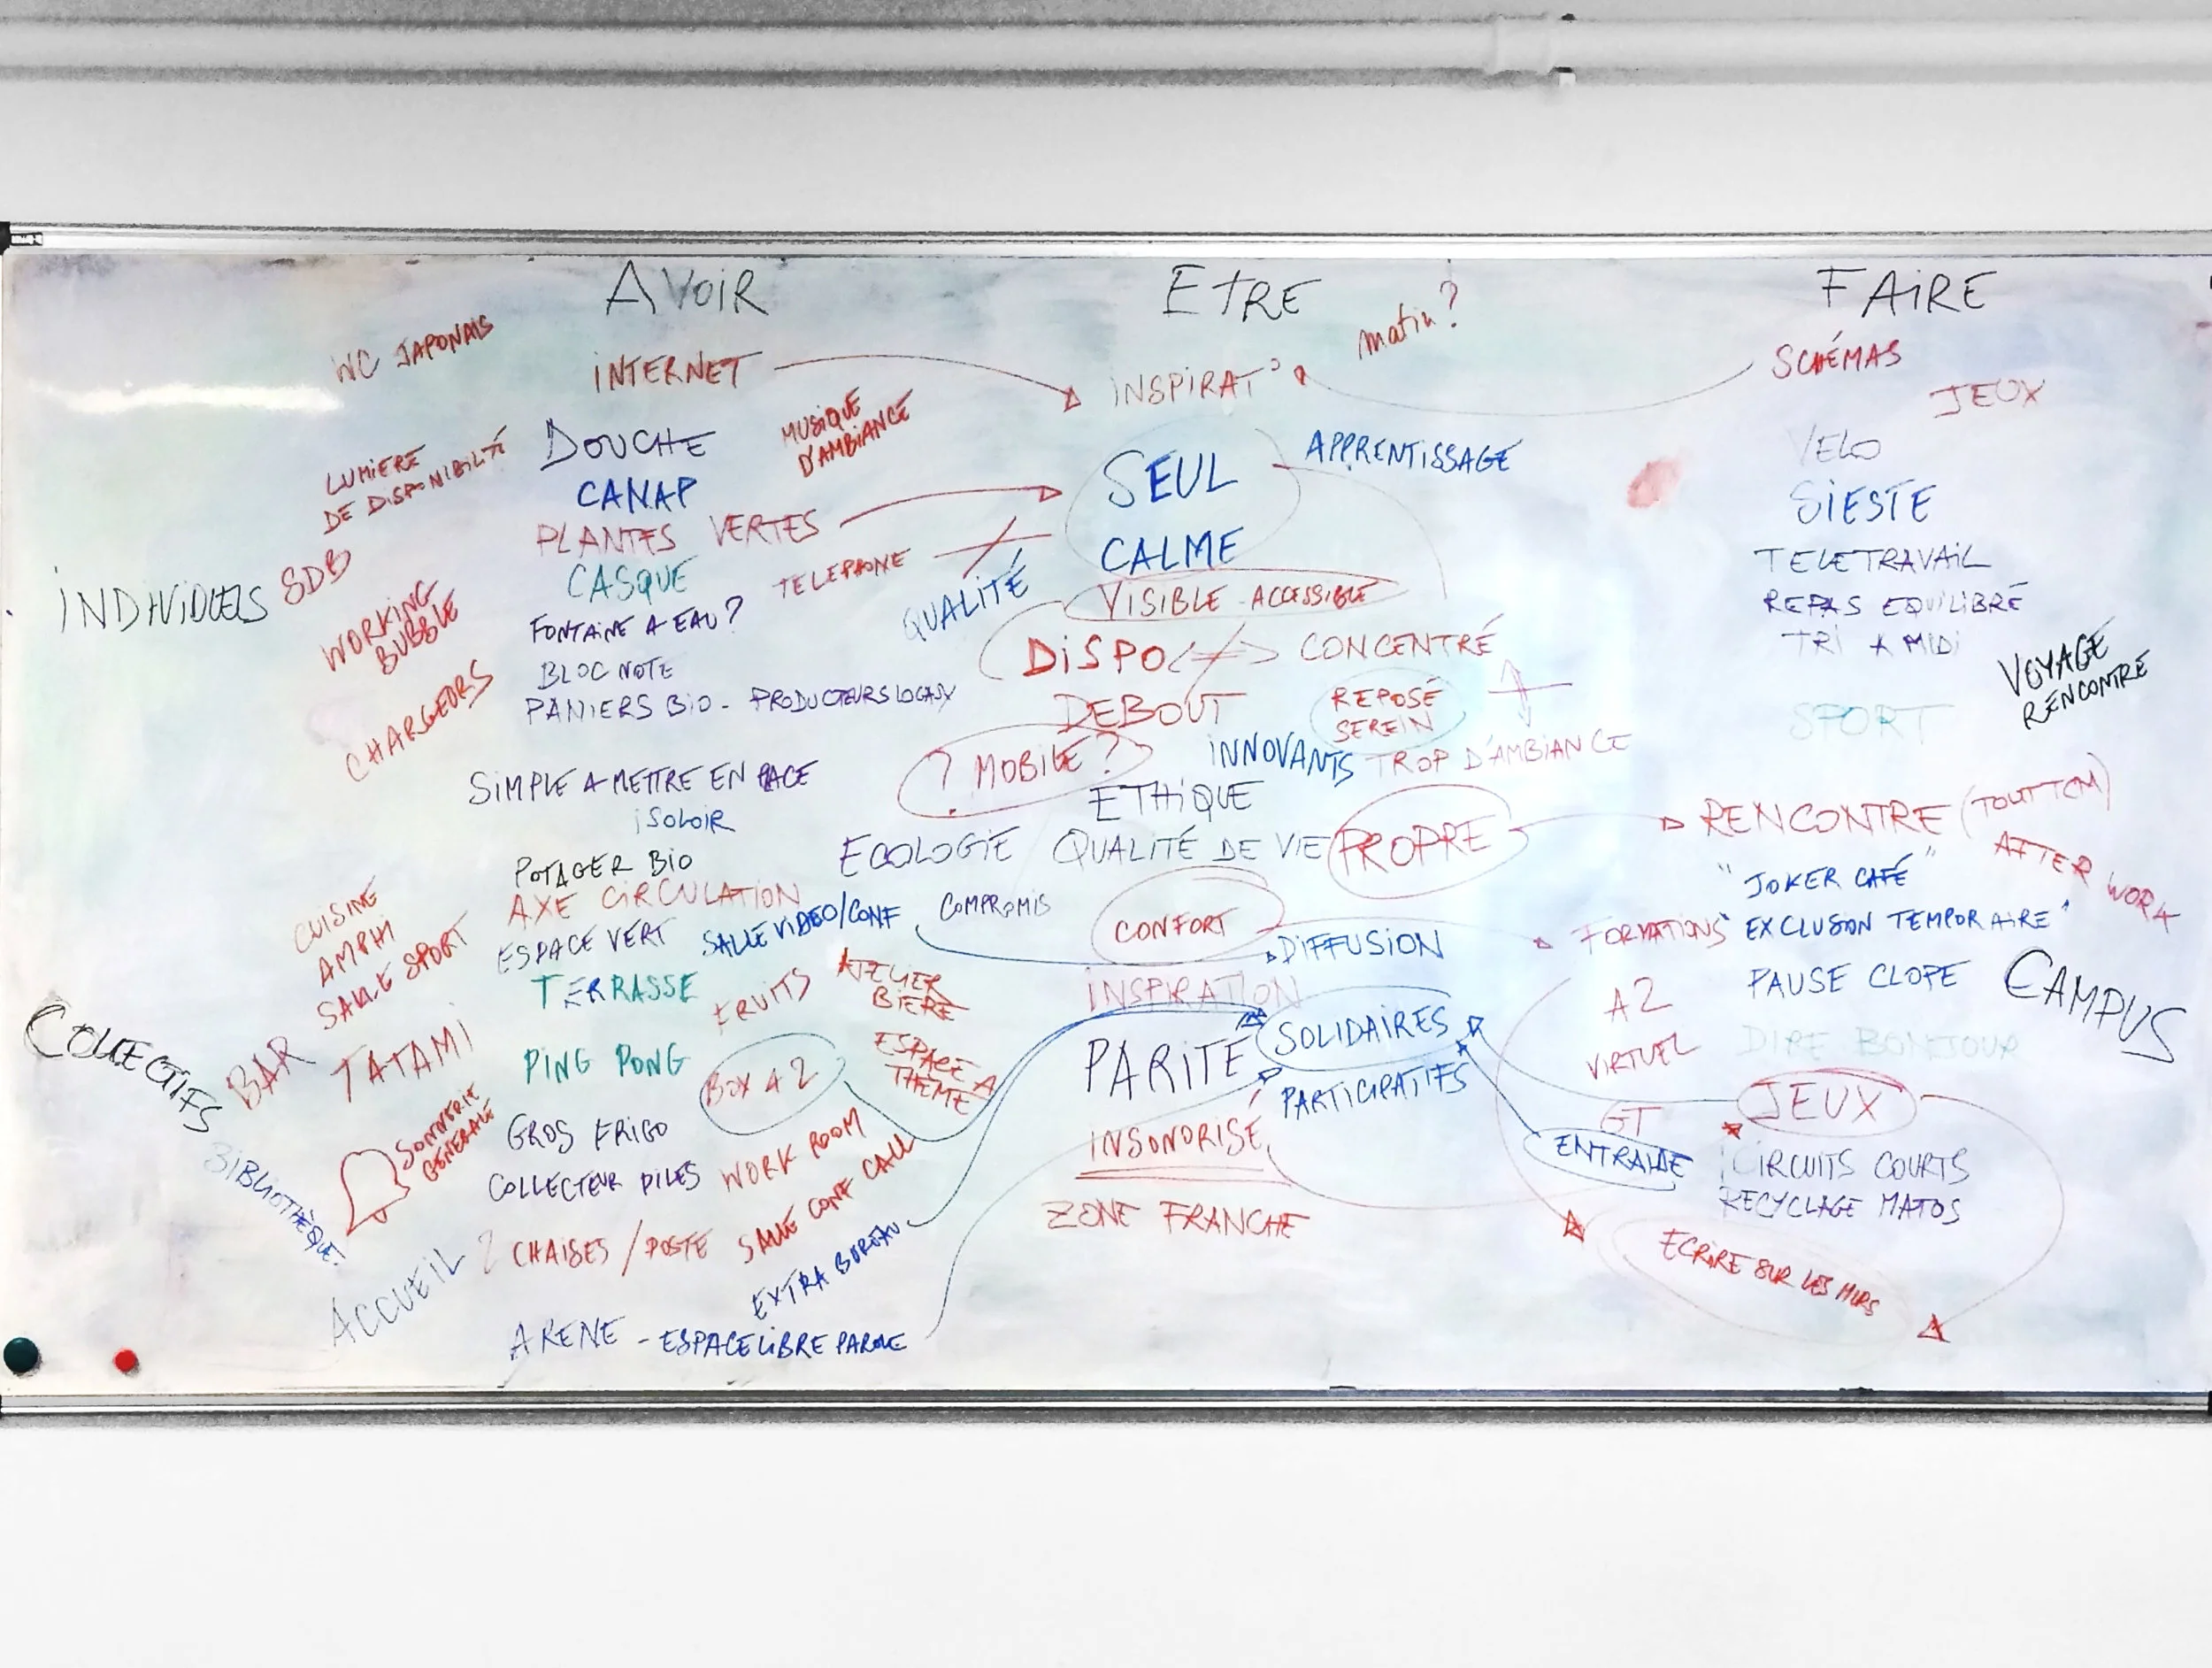 AVOIR
ETRE
FAIRE
WC JAPONAIS
INTERNET
INSPIRAT°
matin?
SCHÉMAS
JEUX
MUSIQUE
D'AMBIANCE
LUMIERE
DE DISPONIBILITÉ
DOUCHE
CANAP
PLANTES VERTES
SEUL
APPRENTISSAGE
CALME
VELO
SIESTE
TELETRAVAIL
REPAS EQUILIBRÉ
TRI A MIDI
INDIVIDUELS
SDB
WORKING
BUBBLE
CHARGEURS
CASQUE
TELEPHONE
QUALITÉ
FONTAINE A EAU?
BLOC NOTE
PANIERS BIO - PRODUCTEURS LOCAUX
VISIBLE - ACCESSIBLE
DISPO <-> CONCENTRÉ
DEBOUT
REPOSÉ
SEREIN
VOYAGE
RENCONTRE
SPORT
SIMPLE A METTRE EN PLACE
ISOLOIR
? MOBILE ?
INNOVANTS
TROP D'AMBIANCE
ETHIQUE
ECOLOGIE
QUALITÉ DE VIE
PROPRE
RENCONTRE (TOUT TCM)
AFTER WORK
"JOKER CAFÉ"
POTAGER BIO
AXE CIRCULATION
ESPACE VERT
SALLE VIDEO/CONF
COMPROMIS
CONFORT
DIFFUSION
FORMATIONS
"EXCLUSION TEMPORAIRE"
CUISINE
AMPHI
SALLE SPORT
TERRASSE
FRUITS
ATELIER
BIERE
INSPIRATION
A2
VIRTUEL
PAUSE CLOPE
CAMPUS
COLLECTIFS
BAR
TATAMI
PING PONG
BOX A 2
ESPACE A
THEME
PARITÉ
SOLIDAIRES
PARTICIPATIFS
DIRE BONJOUR
JEUX
GT
SONNERIE
GÉNÉRALE
BIBLIOTHÈQUE
GROS FRIGO
COLLECTEUR PILES
WORK ROOM
INSONORISÉ
ENTRAIDE
CIRCUITS COURTS
RECYCLAGE MATOS
ACCUEIL
2 CHAISES / POSTE
SALLE CONF CALL
ZONE FRANCHE
ECRIRE SUR LES MURS
EXTRA BUREAU
ARENE - ESPACE LIBRE PAROLE